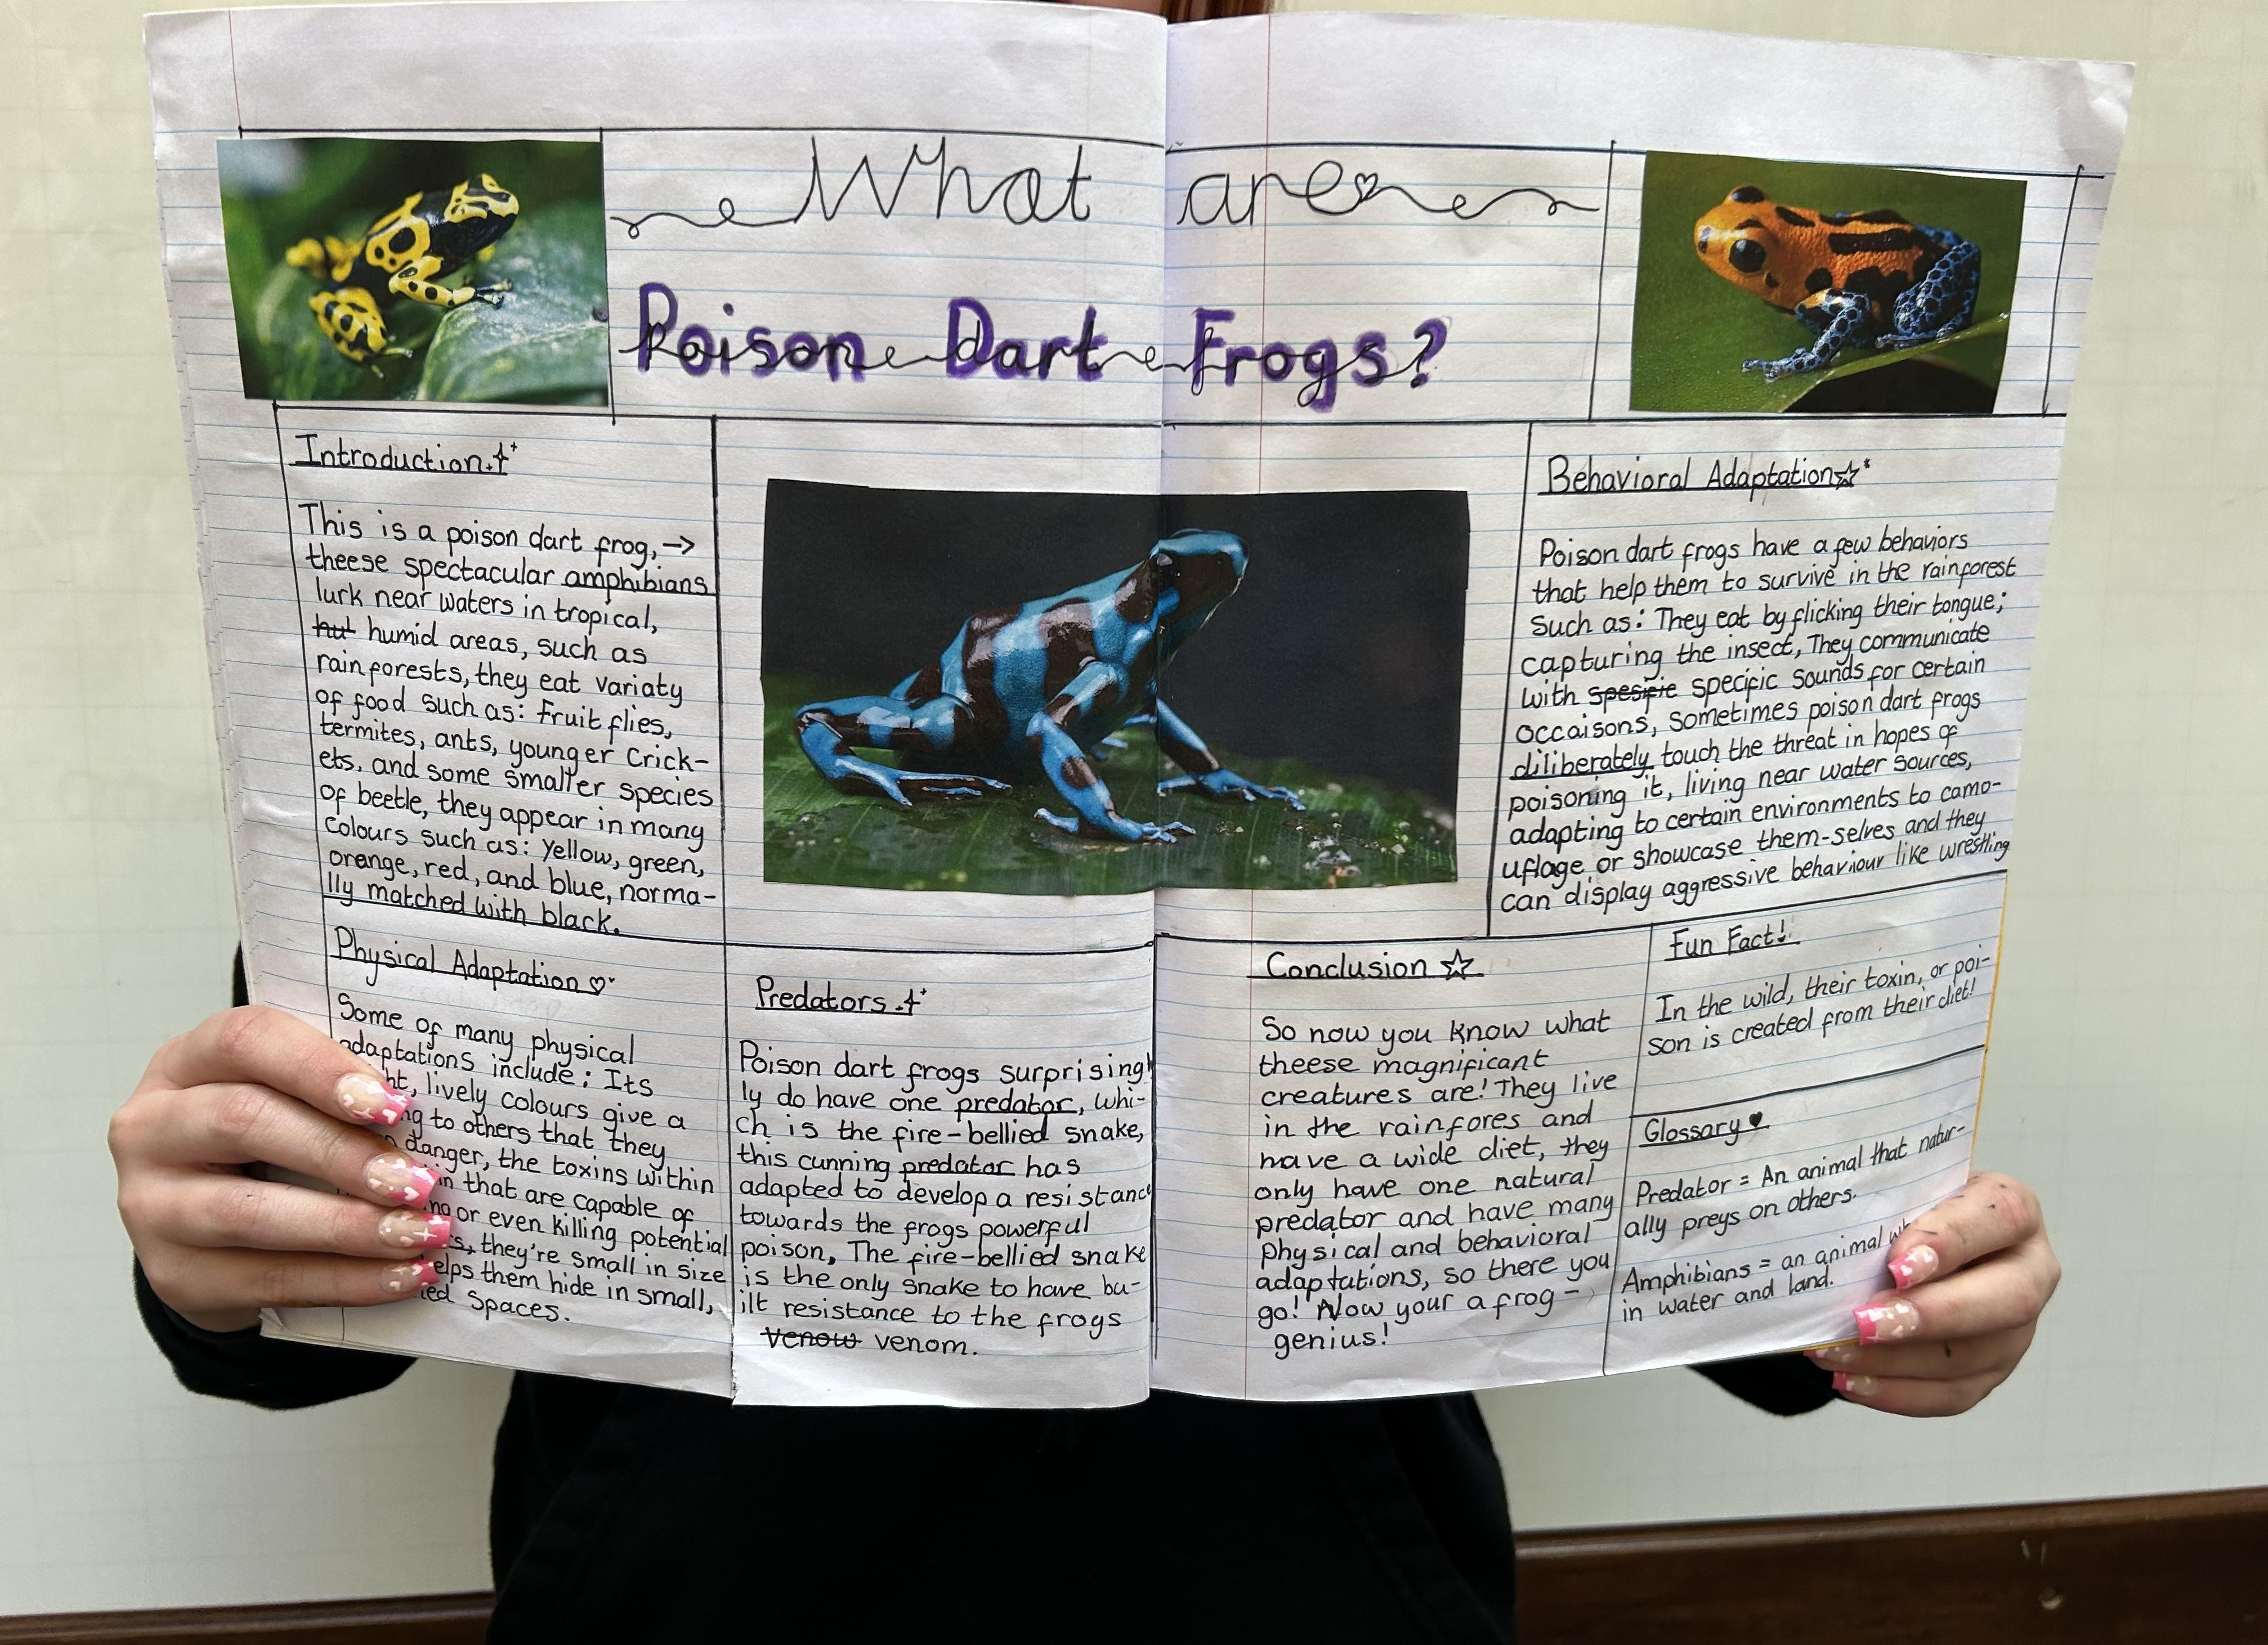 What are
Poison Dart Frogs?
Introduction
This is a poison dart frog, →
theese spectacular amphibians
lurk near waters in tropical,
hut humid areas, such as
rainforests, they eat variaty
of food such as: Fruit flies,
termites, ants, younger Crick-
ets, and some smaller species
of beetle, they appear in many
colours such as: Yellow, green,
orange, red, and blue, norma-
lly matched with black.
Physical Adaptation
Some of many physical
adaptations include: Its
lively colours give a
to others that they
danger, the toxins within
that are capable of
or even killing potential
they're small in size
them hide in small,
spaces.
Predators
Poison dart frogs surprising
ly do have one predator, whi-
ch is the fire-bellied snake,
this cunning predator has
adapted to develop a resistance
towards the frogs powerful
poison, The fire-bellied snake
is the only snake to have bu-
ilt resistance to the frogs
venow venom.
Behavioral Adaptation
Poison dart frogs have a few behaviors
that help them to survive in the rainforest
such as: They eat by flicking their tongue;
capturing the insect, They communicate
with spesifie specific sounds for certain
occaisons, sometimes poison dart frogs
diliberately touch the threat in hopes of
poisoning it, living near water sources,
adapting to certain environments to camo-
uflage or showcase them-selves and they
can display aggressive behaviour like wrestling
Conclusion
So now you know what
theese magnificant
creatures are! They live
in the rainfores and
have a wide diet, they
only have one natural
predator and have many
physical and behavioral
adaptations, so there you
go! Now your a frog-
genius!
Fun Fact!
In the wild, their toxin, or poi-
son is created from their diet!
Glossary
Predator = An animal that natur-
ally preys on others.
Amphibians = an animal
in water and land.